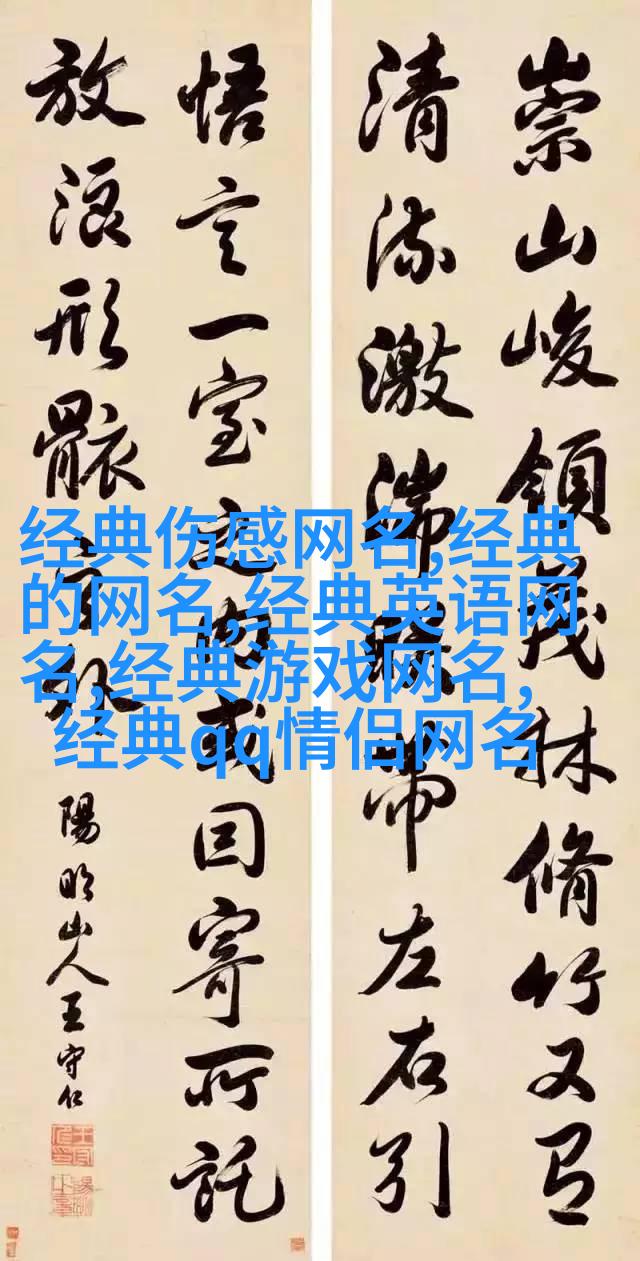 崇山峻領茂林脩竹又有
清流激湍暎帶左右引
悟言一室之內或因寄所託
放浪形骸之外
陽明山人王守仁
经典伤感网名,经典
的网名,经典英语网
名,经典游戏网名,
经典qq情侣网名